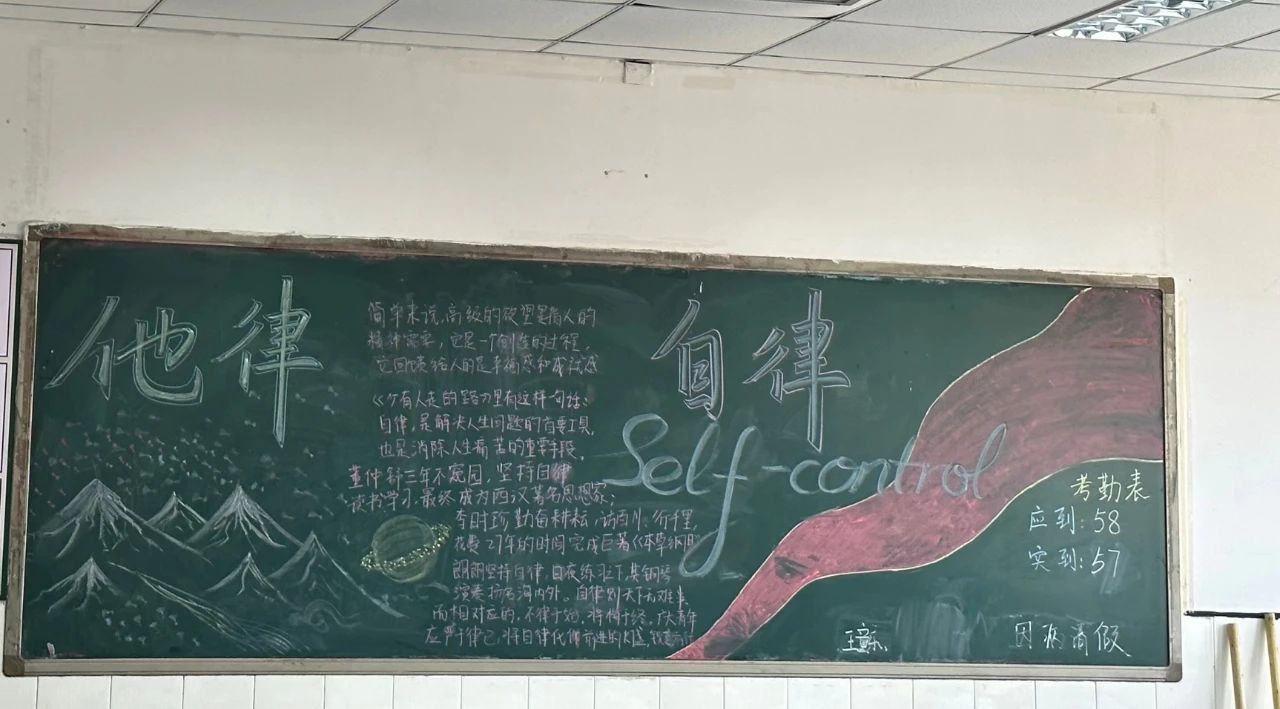 他律
简单来说,高级的欲望是指人的
精神需要,它是一个创造的过程,
它回馈给人的是幸福感和成就感
《少有人走的路》里有这样一句话:
自律,是解决人生问题的首要工具,
也是消除人生痛苦的重要手段。
董仲舒三年不窥园,坚持自律
读书学习,最终成为西汉著名思想家;
李时珍勤奋耕耘,访百川、行千里,
花费27年的时间完成巨著《本草纲目》
朗朗坚持自律,日夜练习下,其钢琴
演奏扬名海内外。自律则天下无难事,
而相对应的,不律于始,将 于终。广大青年
应严于律己,将自律化作前进的灯盏,
自律
Self-control
考勤表
应到:58
实到:57
因病请假